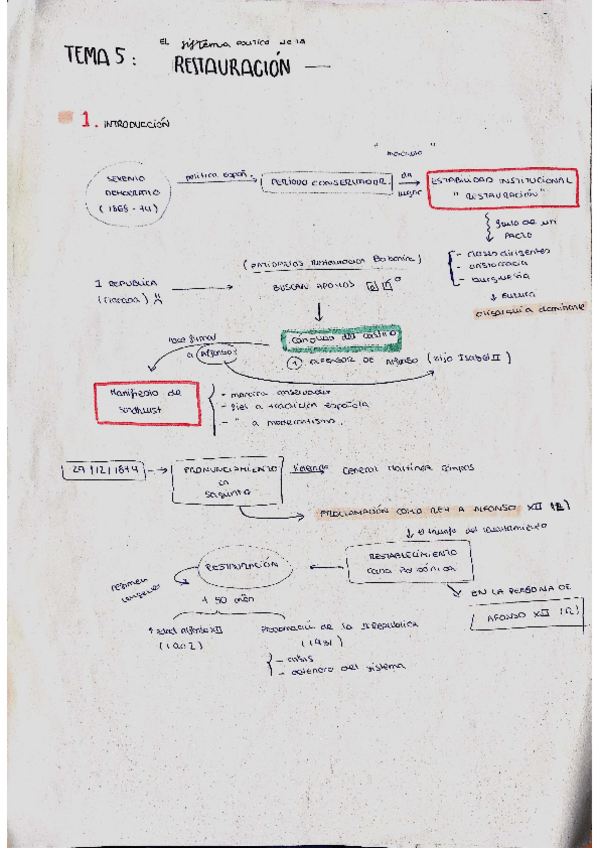 EL sistema político de la
TEMA 5: RESTAURACIÓN
1. INTRODUCCIÓN
SEXENIO DEMOCRÁTICO (1868-74)
política españ.
PERÍODO CONSERVADOR
da lugar
ESTABILIDAD INSTITUCIONAL
"RESTAURACIÓN"
fruto de un PACTO
- clases dirigentes
- aristocracia
- burguesía
↓ futura
oligarquía dominante
I REPÚBLICA
(fracasa)
(PARTIDARIOS RESTAURACIÓN Borbónica)
BUSCAN APOYOS
Cánovas del Castillo
① DEFENSOR DE Alfonso (Hijo Isabel II)
hace firmar
a Alfonso
Manifiesto de Sandhurst
- monarca conservador
- fiel a tradición española
- " a modernismo.
29/12/1874
PRONUNCIAMIENTO en Sagunto
liderado
General Martínez Campos
PROCLAMACIÓN COMO REY A ALFONSO XII
↓ triunfo del levantamiento
RESTABLECIMIENTO
casa Borbónica
EN LA PERSONA DE
ALFONSO XII
RESTAURACIÓN
régimen
+ 50 años
Alfonso XII
(1902)
Proclamación de la II República
(1931)
- crisis
- deterioro del sistema